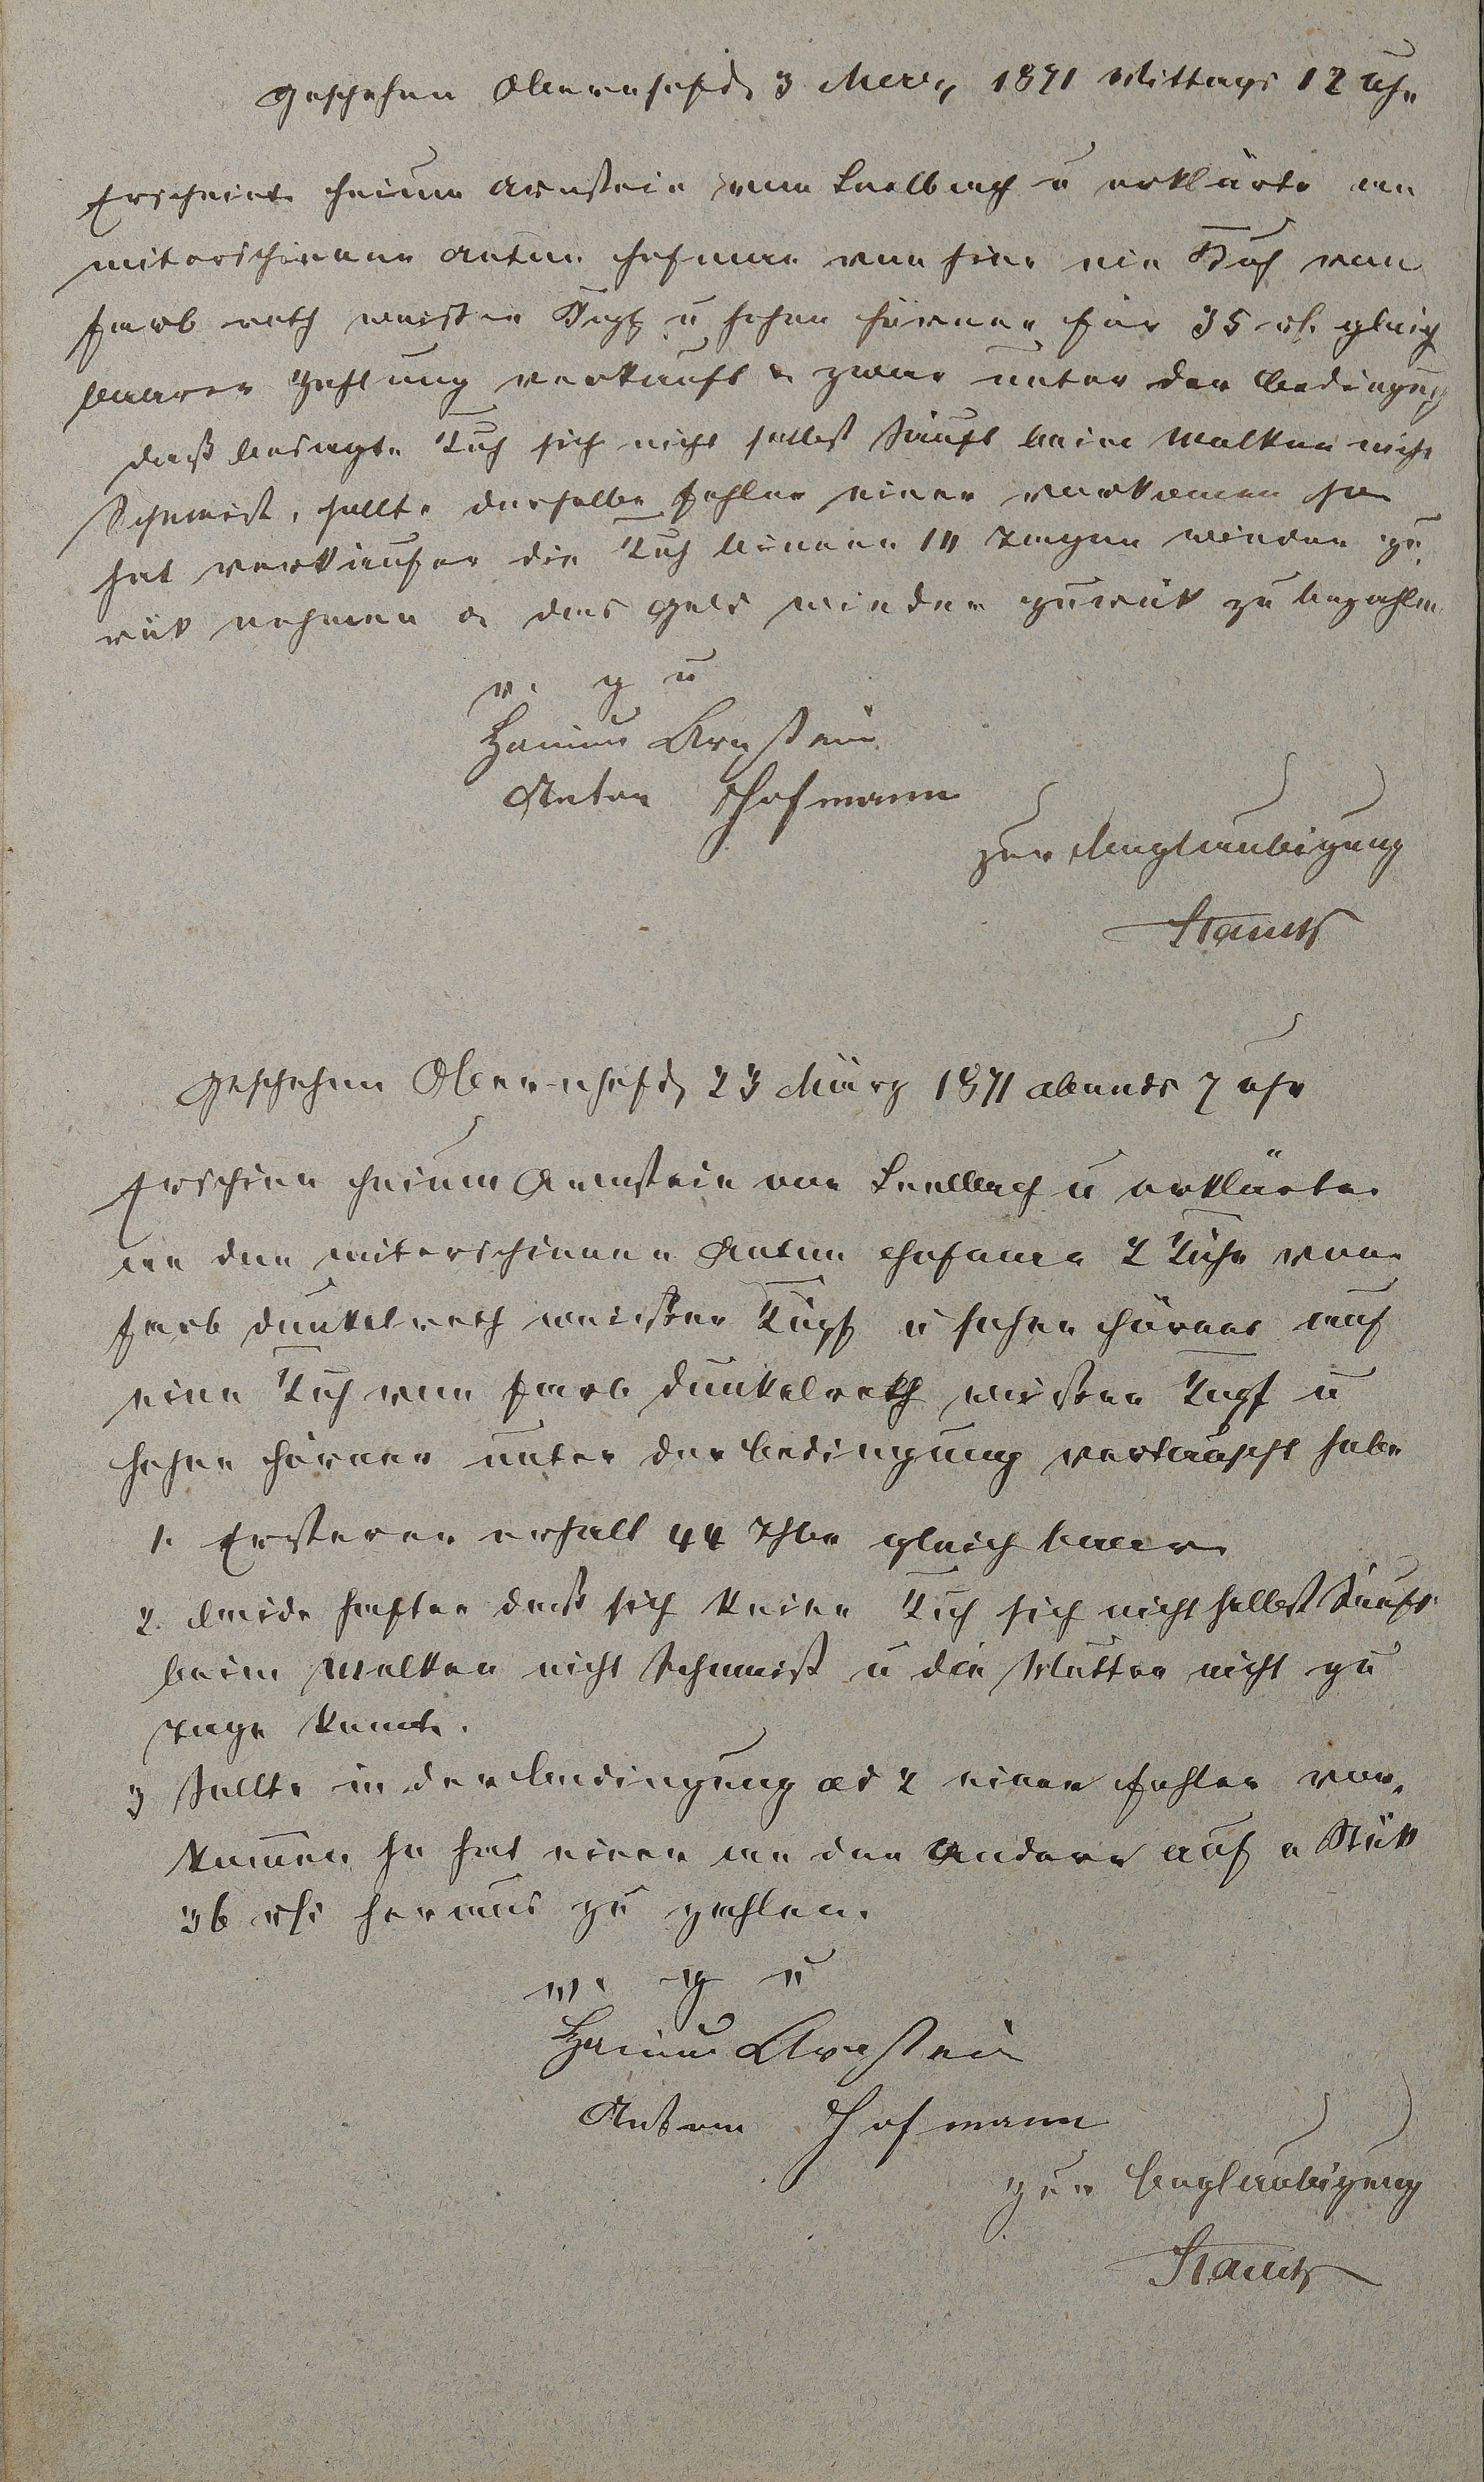 Geschehen Obernhof d 3 Merz 1871 Mittags 12 Uhr
Erscheint Heium Arnstein von Seelbach u erklärte an
miterschienene Anton Hofman von hier ein Kuh von
farb roth weisen Kopf u hohen Hörner für 35 rh. gleich
baarer Zahlung verkauft & zwar unter der Bedingung
daß besagte Kuh sich nicht selbst säuft beim Malken nicht
Schmeist, sollte derselbe Fehler einer vorkomen so
hat verkäufer die Kuh binnen 14 Tagen wieder zu,
rük nehmen & das Geld wieder zurük zu bezahlen
v. g u
Haium Arnstein
Anton Hofmann
zur Beglaubigung
Geschehen Obernhof d 23 März 1871 abends 7 uhr
Erschien Heium Arnstein von Seelbach u erklärte
an den miterschienen Anton Hofman 2 Kühe von
farb dunkelroth weisser Kopf u hohen Hörner auf
eine Kuh von farb dunkelroth weissen Kopf u
hohen Hörner unter der bedingung vertauscht habe
1. Ersterer erhalt 44 Thlr gleich baar
2. Beide haften daß sich keine Kuh sich nicht selbst säuft
beim Melken nicht schmeist u die Mutter nicht zu
Tage komt.
3 Sollte in der Bedingung ad 2 einer Fehler vor,
kommen so hat einer an den Andern auf a Stük
36 rh heraus zu zahlen.
v. g u
Haium Arnstein
Anton Hofmann
zur Beglaubigung